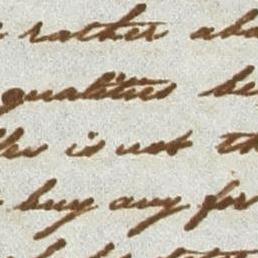 rather abo
qualities be
is not th
buy any for